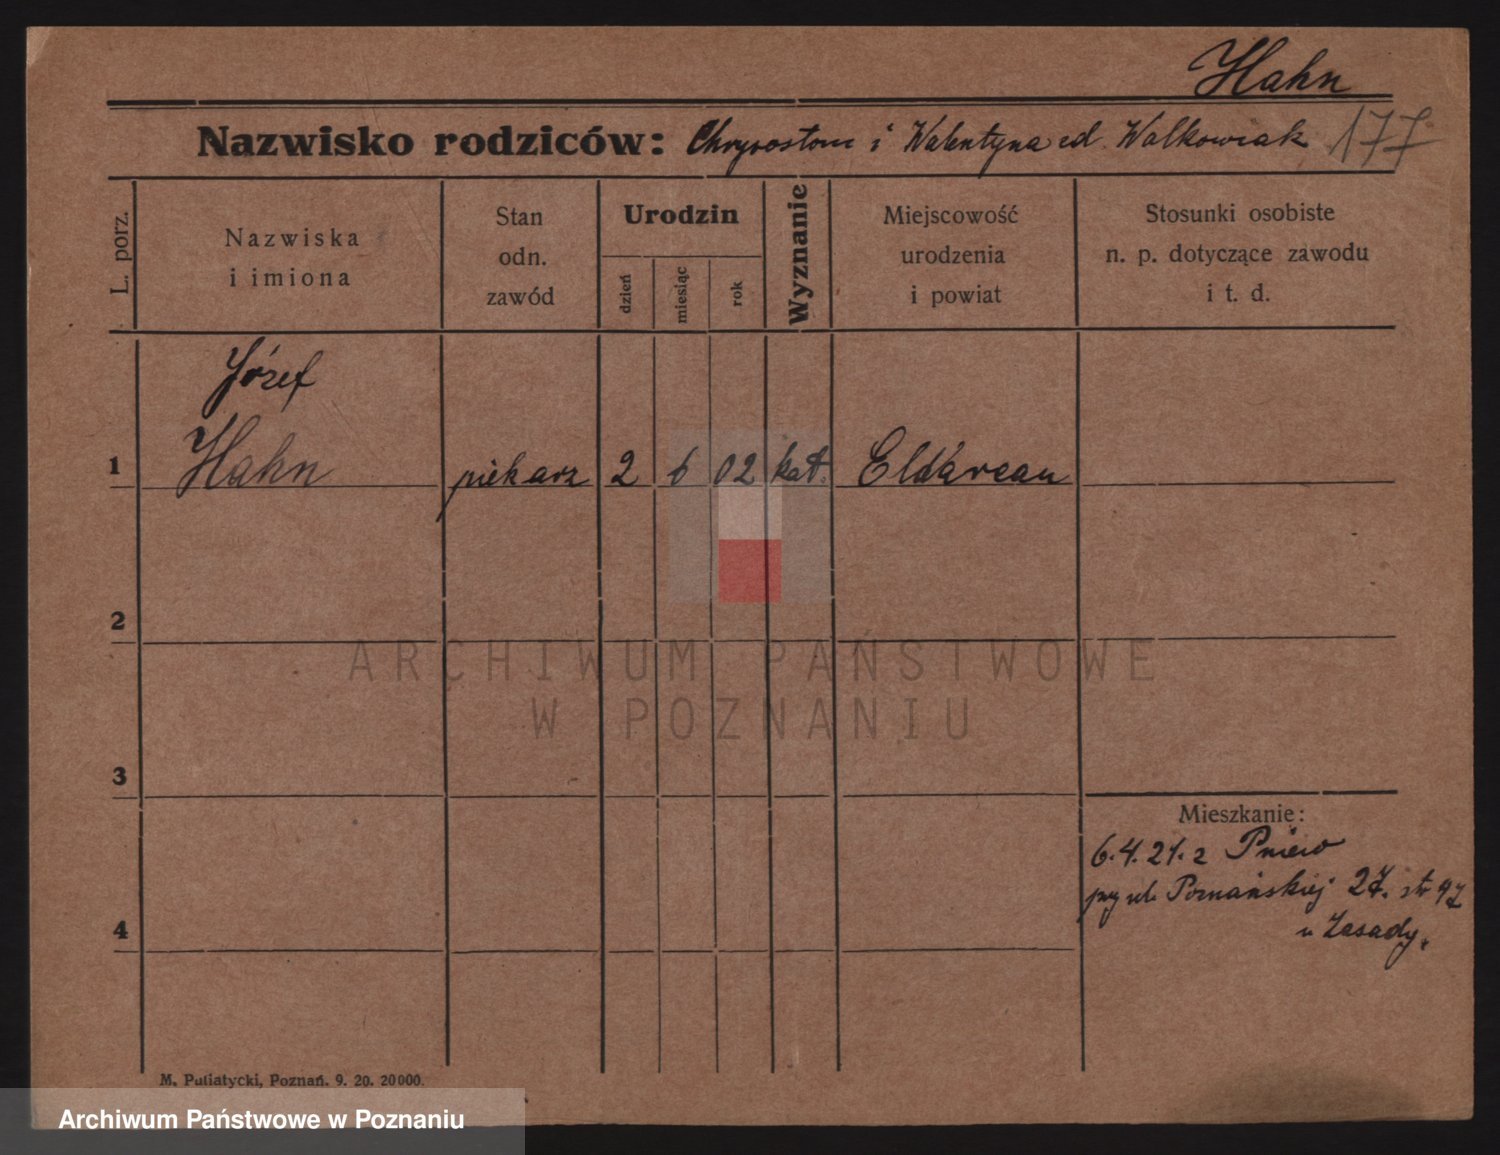 Hahn
Nazwisko rodziców: Chryzostom i Walentyna zd. Walkowiak 177
L. porz.
Nazwiska
i imiona
Stan
odn.
zawód
Urodzin
dzień
miesiąc
rok
Wyznanie
Miejscowość
urodzenia
i powiat
Stosunki osobiste
n. p. dotyczące zawodu
i t. d.
Józef
1 Hahn piekarz 2 6 02 kat.
2
ARCHIWUM PAŃSTWOWE
W POZNANIU
3
Mieszkanie:
6.4.21. z Pniew
przy ul. Poznańskiej 27. str 97
4
u Zasady.
M. Putiatycki, Poznań. 9. 20. 20000.
Archiwum Państwowe w Poznaniu